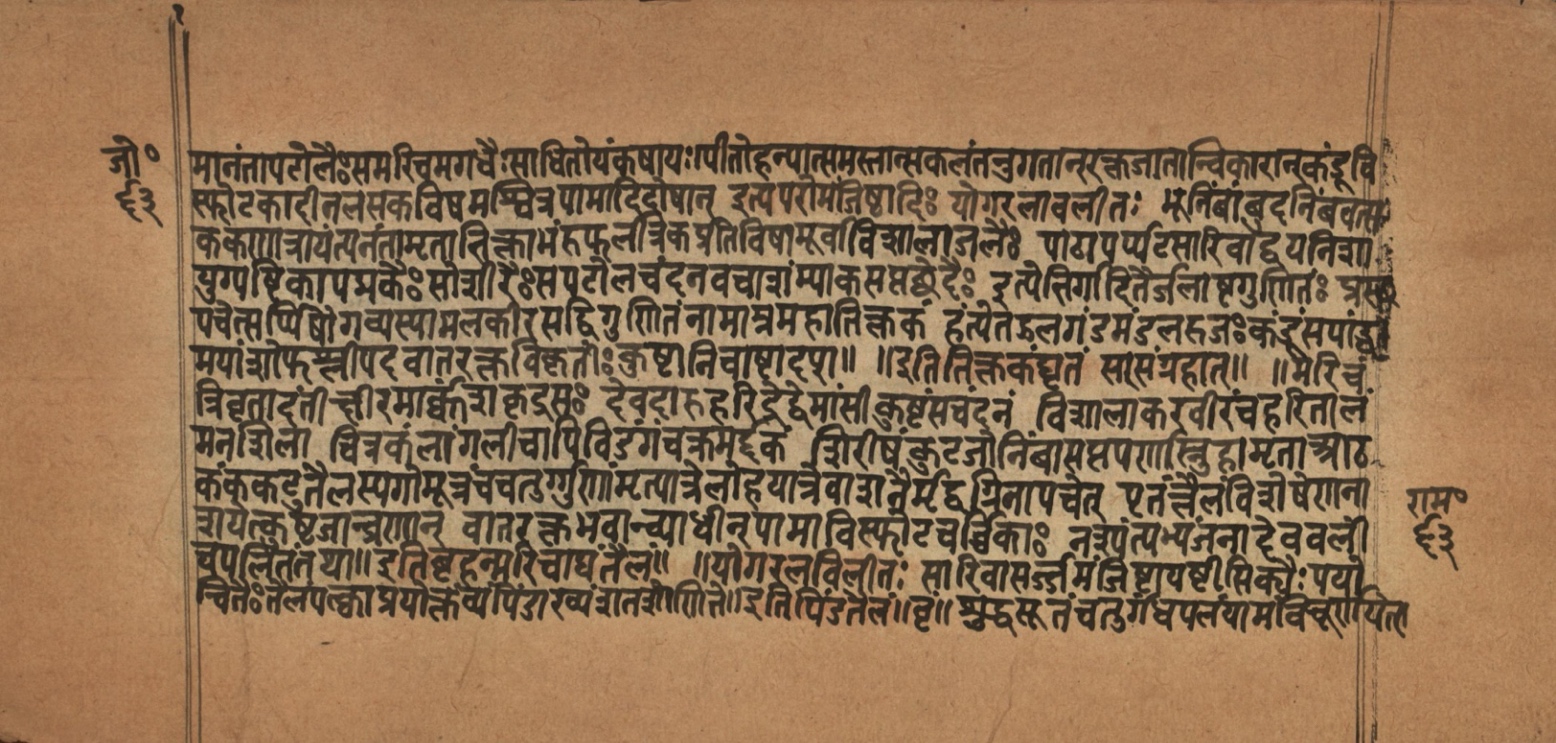 जो॰
६३
मानंतापटोलैः समरिचमगधैः साधितोयंकषायः। पीतोहन्यात्समस्तान्सकलंतनुगतान्रक्तजातान्विकारान्कंडूवि
स्फोटकादीनलसकविषमश्वित्रपामादिदोषान् इत्यपरोमंजिष्ठादिः योगरत्नावलीतः भूनिंबांबुदनिंबवत्स
ककणात्रायंत्यनंतामृतातिक्ताभंरुफलत्रिकप्रतिविषामूर्वाविशालाजलैः पाठापर्प्पटसारिवाद्वयनिशा
युग्यष्टिकापद्मकैः सोशीरैः सपटोलचंदनवचाशंम्याकसप्तछदैः इत्येतैर्गदितैर्जलाष्टगुणितंः प्रस्थं
पचेत्सर्प्पिषोगव्यस्यामलकीरसद्विगुणितंनामाम्नमहातिक्तकं हंत्येतद्गलगंडमंडलरुजःकंडूंसपांड्वा
मयांशोफश्लीपदवातरक्तविकृतीःकुष्टानिचाष्टादश॥ ॥इतितिक्तकंघृतं सारसंग्रहात्॥ ॥मरिचं
त्रिवृतादंतीक्षीरमार्क्कंशकृद्रसः देवदारुहरिद्रेद्वेमांसीकुष्टंसचंदनं विशालाकरवीरंचहरितालं
मनःशिला चित्रकंलांगलीचापिविडंगंचक्रमर्द्दकं शिरीषंकुटजोनिंबासप्तपर्णास्नुहामृताआठ
कंकटुतैलस्यगोमूत्रंचचतुर्गुणंमृत्पात्रेलोहपात्रेवाशनैर्मृद्वग्निनापचेत् एतत्तैलंविशेषेणना
शयेत्कुष्टजान्व्रणान् वातरक्तभवान्व्याधीन्पामाविस्फोटचर्च्चिकाः नश्यंत्यभ्यंजनादेववली
चपलितंतथा॥ इतिबृहन्मरिचाद्यंतैलं॥ ॥योगरत्नावलीतः सारिवासर्ज्जमंजिष्टायष्टीसिक्थैःपयो
न्वितैःतैलंपक्त्वाप्रयोक्तव्यंपिंडाख्यंवातशोणिते॥ इतिपिंडतैलं॥ वृं॥ शुद्धसूतंचतुर्गंधपलंयामंविचूर्णयेत्
राम॰
६३